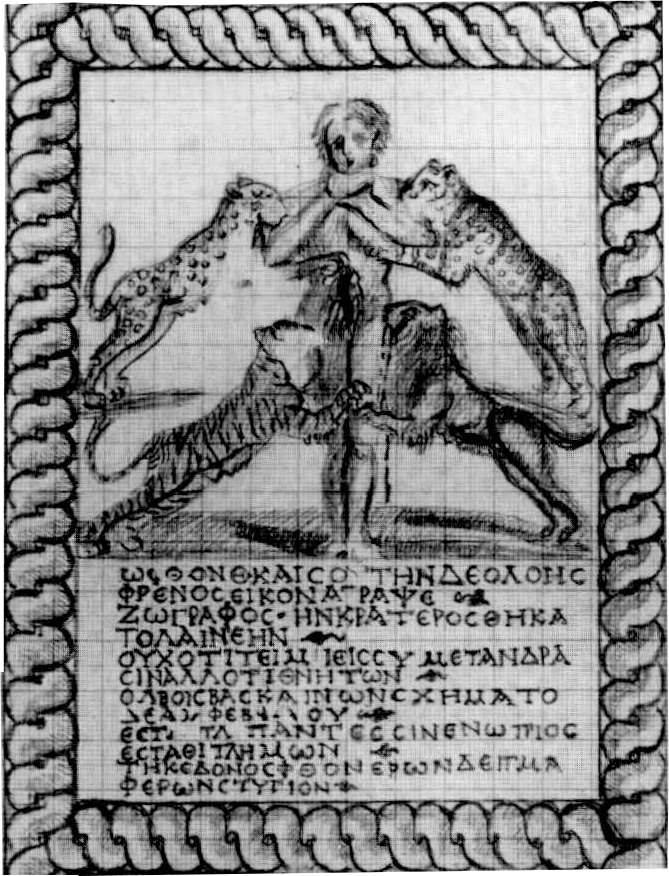 ΩΦΘΟΝΕΚΑΙϹΟ ΤΗΝΔΕΟΛΟΗϹ
ΦΡΕΝΟϹΕΙΚΟΝΑΓΡΑΨΕ
ΖΩΓΡΑΦΟϹ·ΗΝΚΡΑΤΕΡΟϹΘΗΚΑ
ΤΟΛΑΙΝΕΗΝ
ΟΥΧΟΤΙΤΕΙΜ ΙΕΙϹϹΥΜΕΤΑΝΔΡΑ
ϹΙΝΑΛΛΟΤΙΘΝΗΤΩΝ
ΟΛΒΟΙϹΒΑϹΚΑΙΝΩΝϹΧΗΜΑΤΟ
ΔΕΑΜΦΕΒΑΛΟΥ
ΠΑΝΤΕϹϹΙΝΕΝΩΠΙΟϹ
ΕϹΤΑΘΙΤΛΗΜΩΝ
ΤΗΚΕΔΟΝΟϹΦΘΟΝΕΡΩΝΔΕΙΓΜΑ
ΦΕΡΩΝϹΤΥΓΙΟΝ